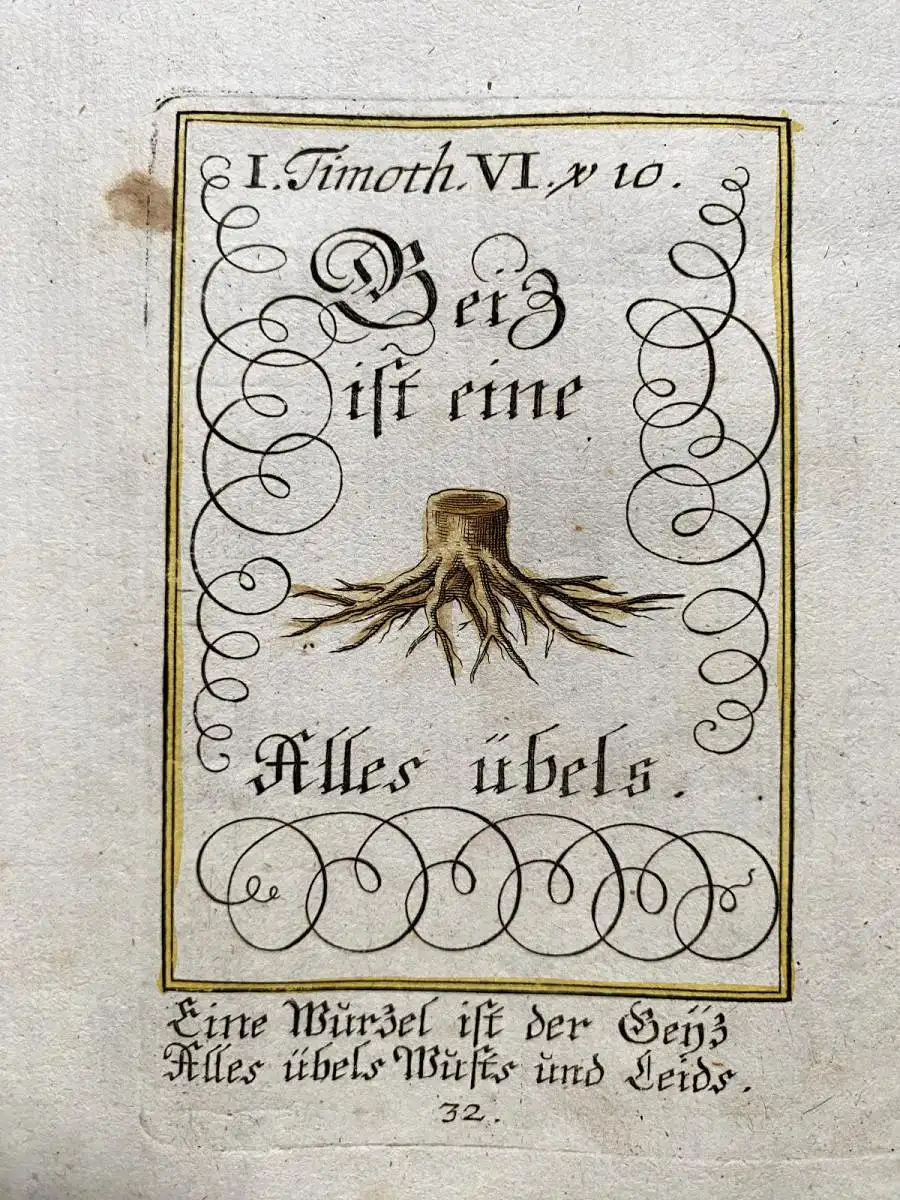 I. Timoth. VI. v 10.
Geiz
ist eine
Alles übels.
Eine Wŭrzel ist der Geÿz
Alles übels Wŭsts ŭnd Leids.
32.